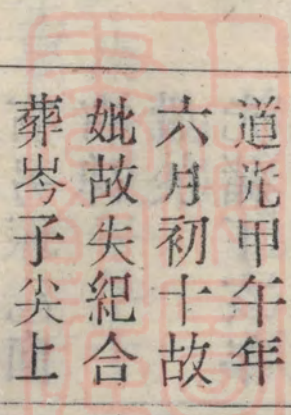 道光甲午年
六月初十故
妣故失紀合
葬岑子尖上